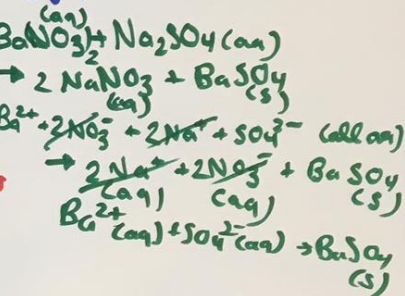 (aq)
BaNO3)2 + Na2SO4 (aq)
→ 2 NaNO3 + BaSO4
(aq) (s)
Ba2+ + 2NO3- + 2Na+ + SO42- (all aq)
→ 2 Na+ + 2NO3- + BaSO4
(aq) (aq) (s)
Ba2+(aq) + SO42-(aq) → BaSO4
(s)